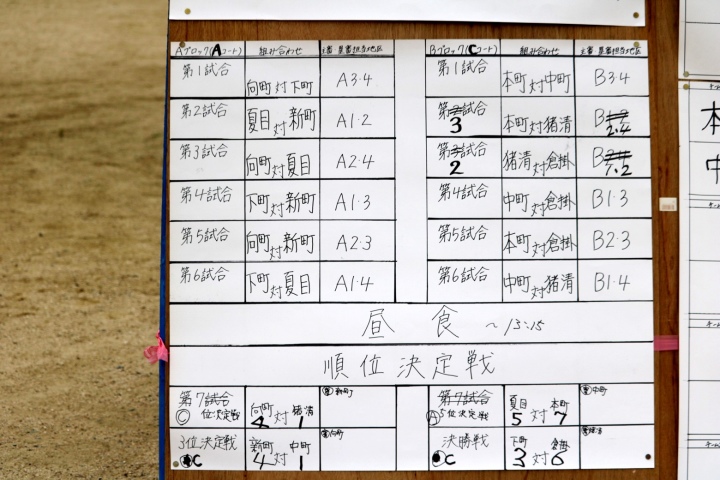 Aブロック(Aコート) 組み合わせ 主審・塁審担当地区
第1試合 向町対下町 A3・4
第2試合 夏目対新町 A1・2
第3試合 向町対夏目 A2・4
第4試合 下町対新町 A1・3
第5試合 向町対新町 A2・3
第6試合 下町対夏目 A1・4
Bブロック(Cコート) 組み合わせ 主審・塁審担当地区
第1試合 本町対中町 B3・4
第3試合 本町対猪清 B2.4
第2試合 猪清対倉掛 B1.2
第4試合 中町対倉掛 B1・3
第5試合 本町対倉掛 B2・3
第6試合 中町対猪清 B1・4
昼食 ～13:15
順位決定戦
第7試合 向町 対 猪清 新町
C 位決定戦 4 1
3位決定戦 新町 対 中町 向町
C 4 1
第7試合 夏目 対 本町 中町
A 5位決定戦 5 7
決勝戦 下町 対 倉掛
C 3 6
本
中